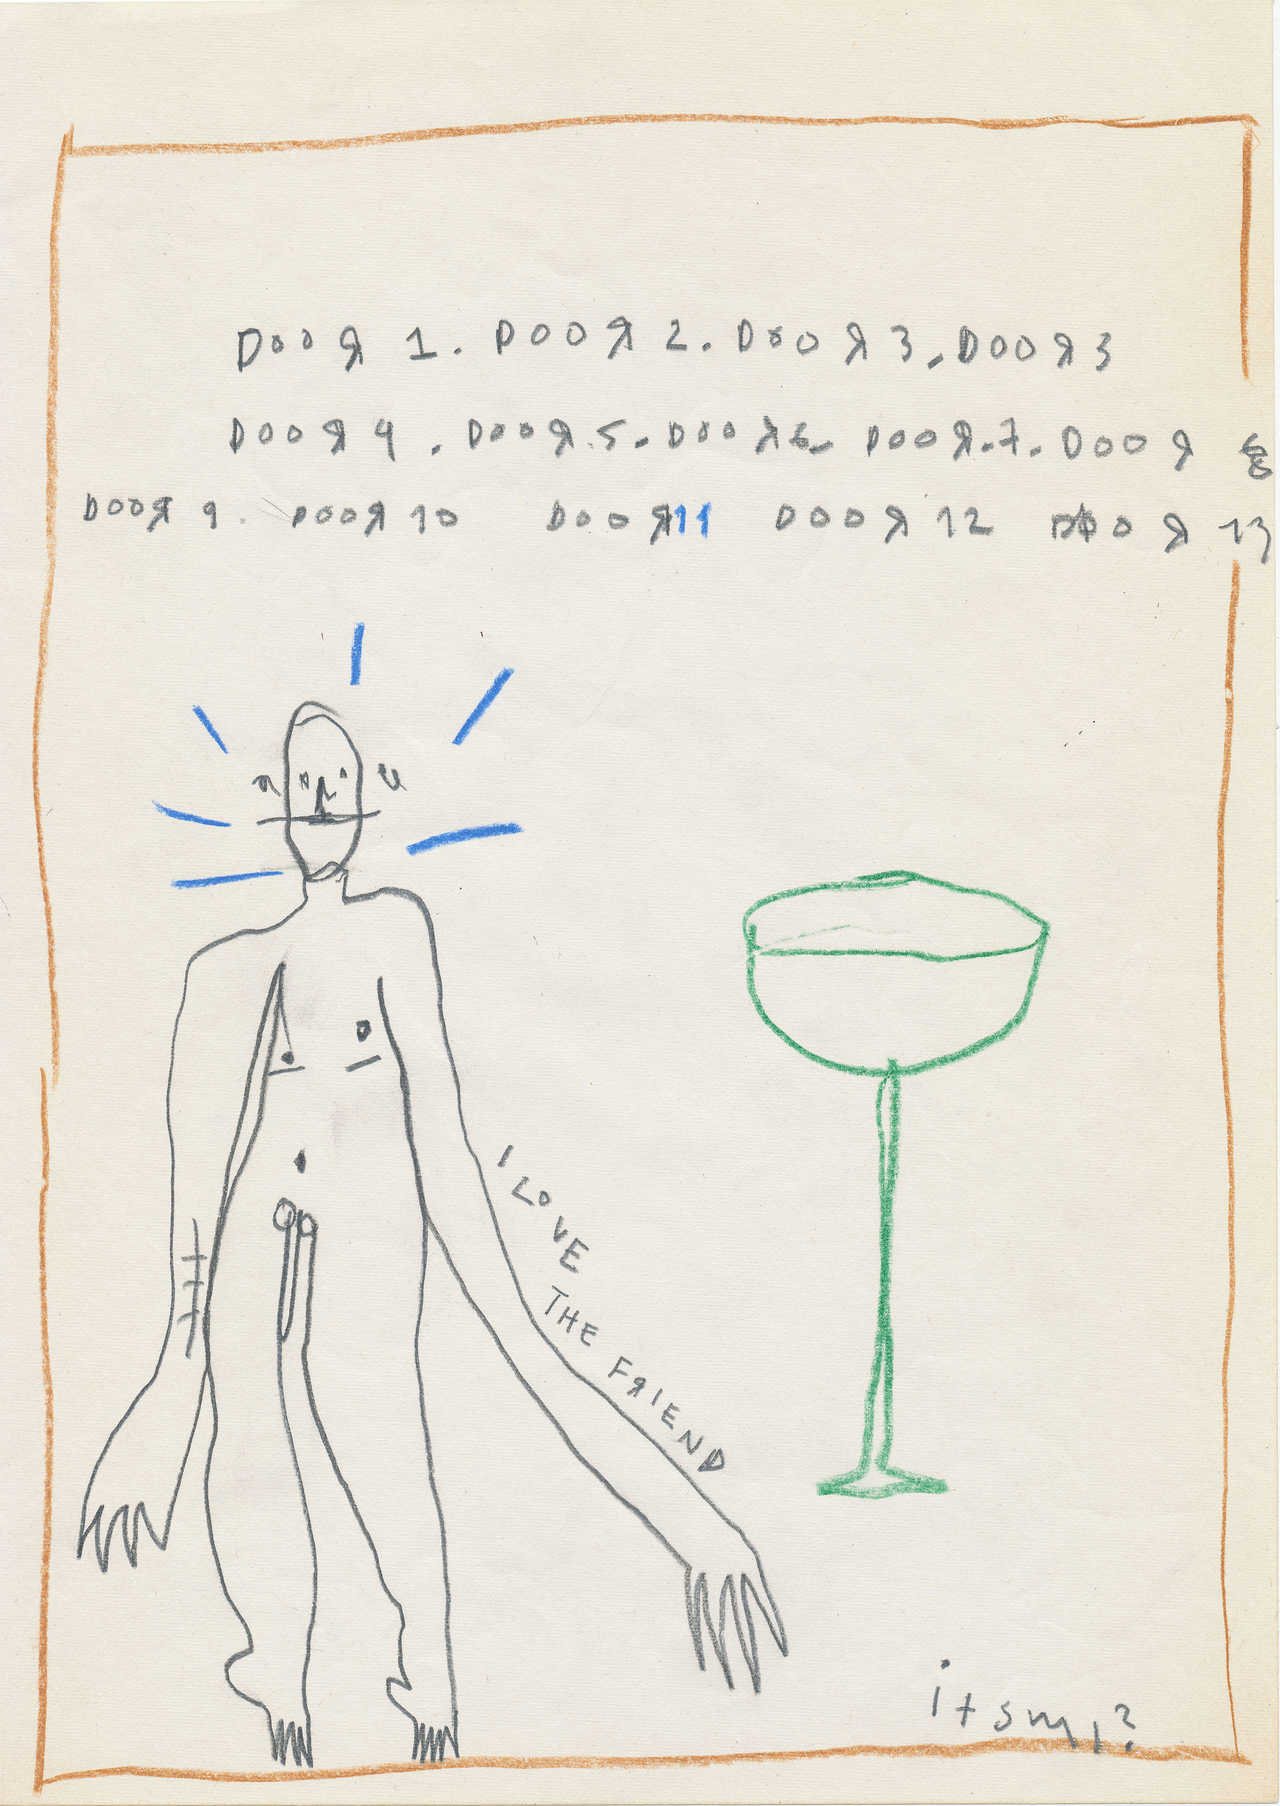 DOOЯ 1. DOOЯ 2. DOOЯ 3. DOOЯ 3
DOOЯ 4. DOOЯ.5. DOOЯ 6. DOOЯ.7. DOOЯ 8
DOOЯ 9. DOOЯ 10 DOOЯ 11 DOOЯ 12 DOOЯ 13
I LOVE THE FЯIEND